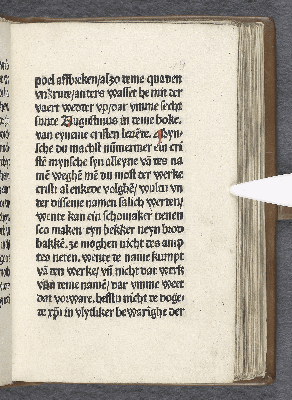 poel affbreken/alzo teme quaden
vnkrute/anders wasset he mit der
vaert wedder vp/dar vmme secht
sunte Augustinus in teme boke.
van eyneme cristen leuēde. Myn-
sche du machst nūmermer ein cri
stē mynsche syn alleyne vā tes na
mē weghē mē du most der werke
cristi al enkede volghē/ wultu vn
der disseme namen salich werten/
wente kan ein schomaker nenen
sco maken eyn bekker neyn brod
bakkē. ze moghen nicht tes amp
tes neten. wente te name kumpt
vā ten werke/ vn̄ nicht dat werk
van teme namē/ dar vmme weet
dat vorware. hefstu nicht te doge-
te xp̄i in vlytliker bewarighe der